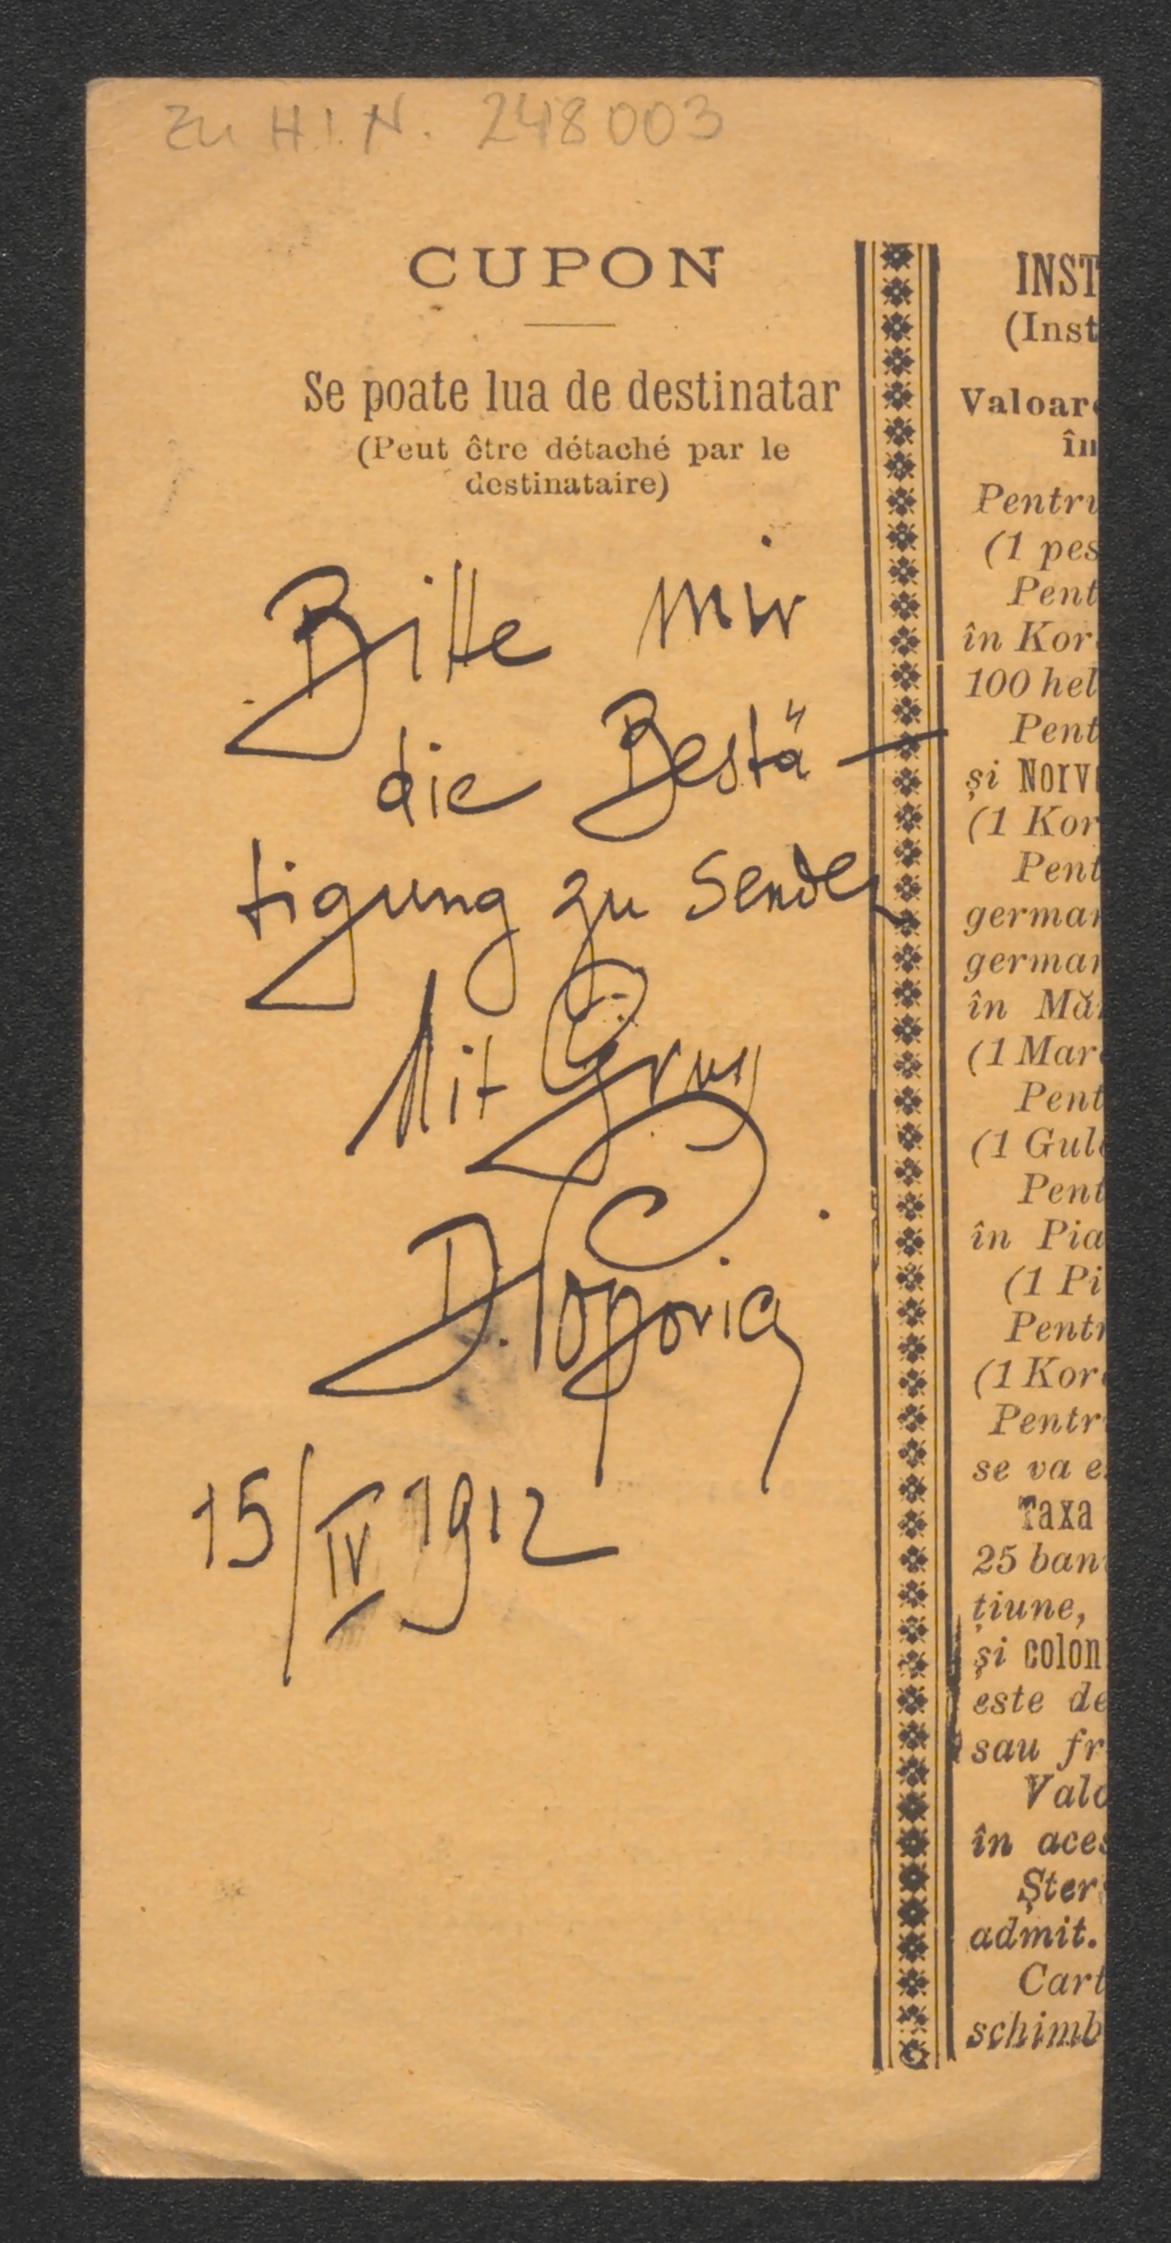 Zu H.I.N. 248003
CUPON
Se poate lua de destinatar
(Peut être détaché par le
destinataire)
Bitte mir
die Bestä-
tigung zu senden
Mit Gruss
D.
15/IV 1912
INST
(Inst
Valoar
în
Pentru
(1 pes
Pent
în Kor
100 hel
Pent
și Norv
(1 Kor
Pent
german
german
în Mă
(1 Mar
Pent
(1 Gul
Pent
în Pia
(1 Pi
Pentr
(1 Kor
Pentr
se va e
Taxa
25 ban
țiune,
și colon
este de
sau fr
Valo
în aces
Șter
admit.
Cart
schimb